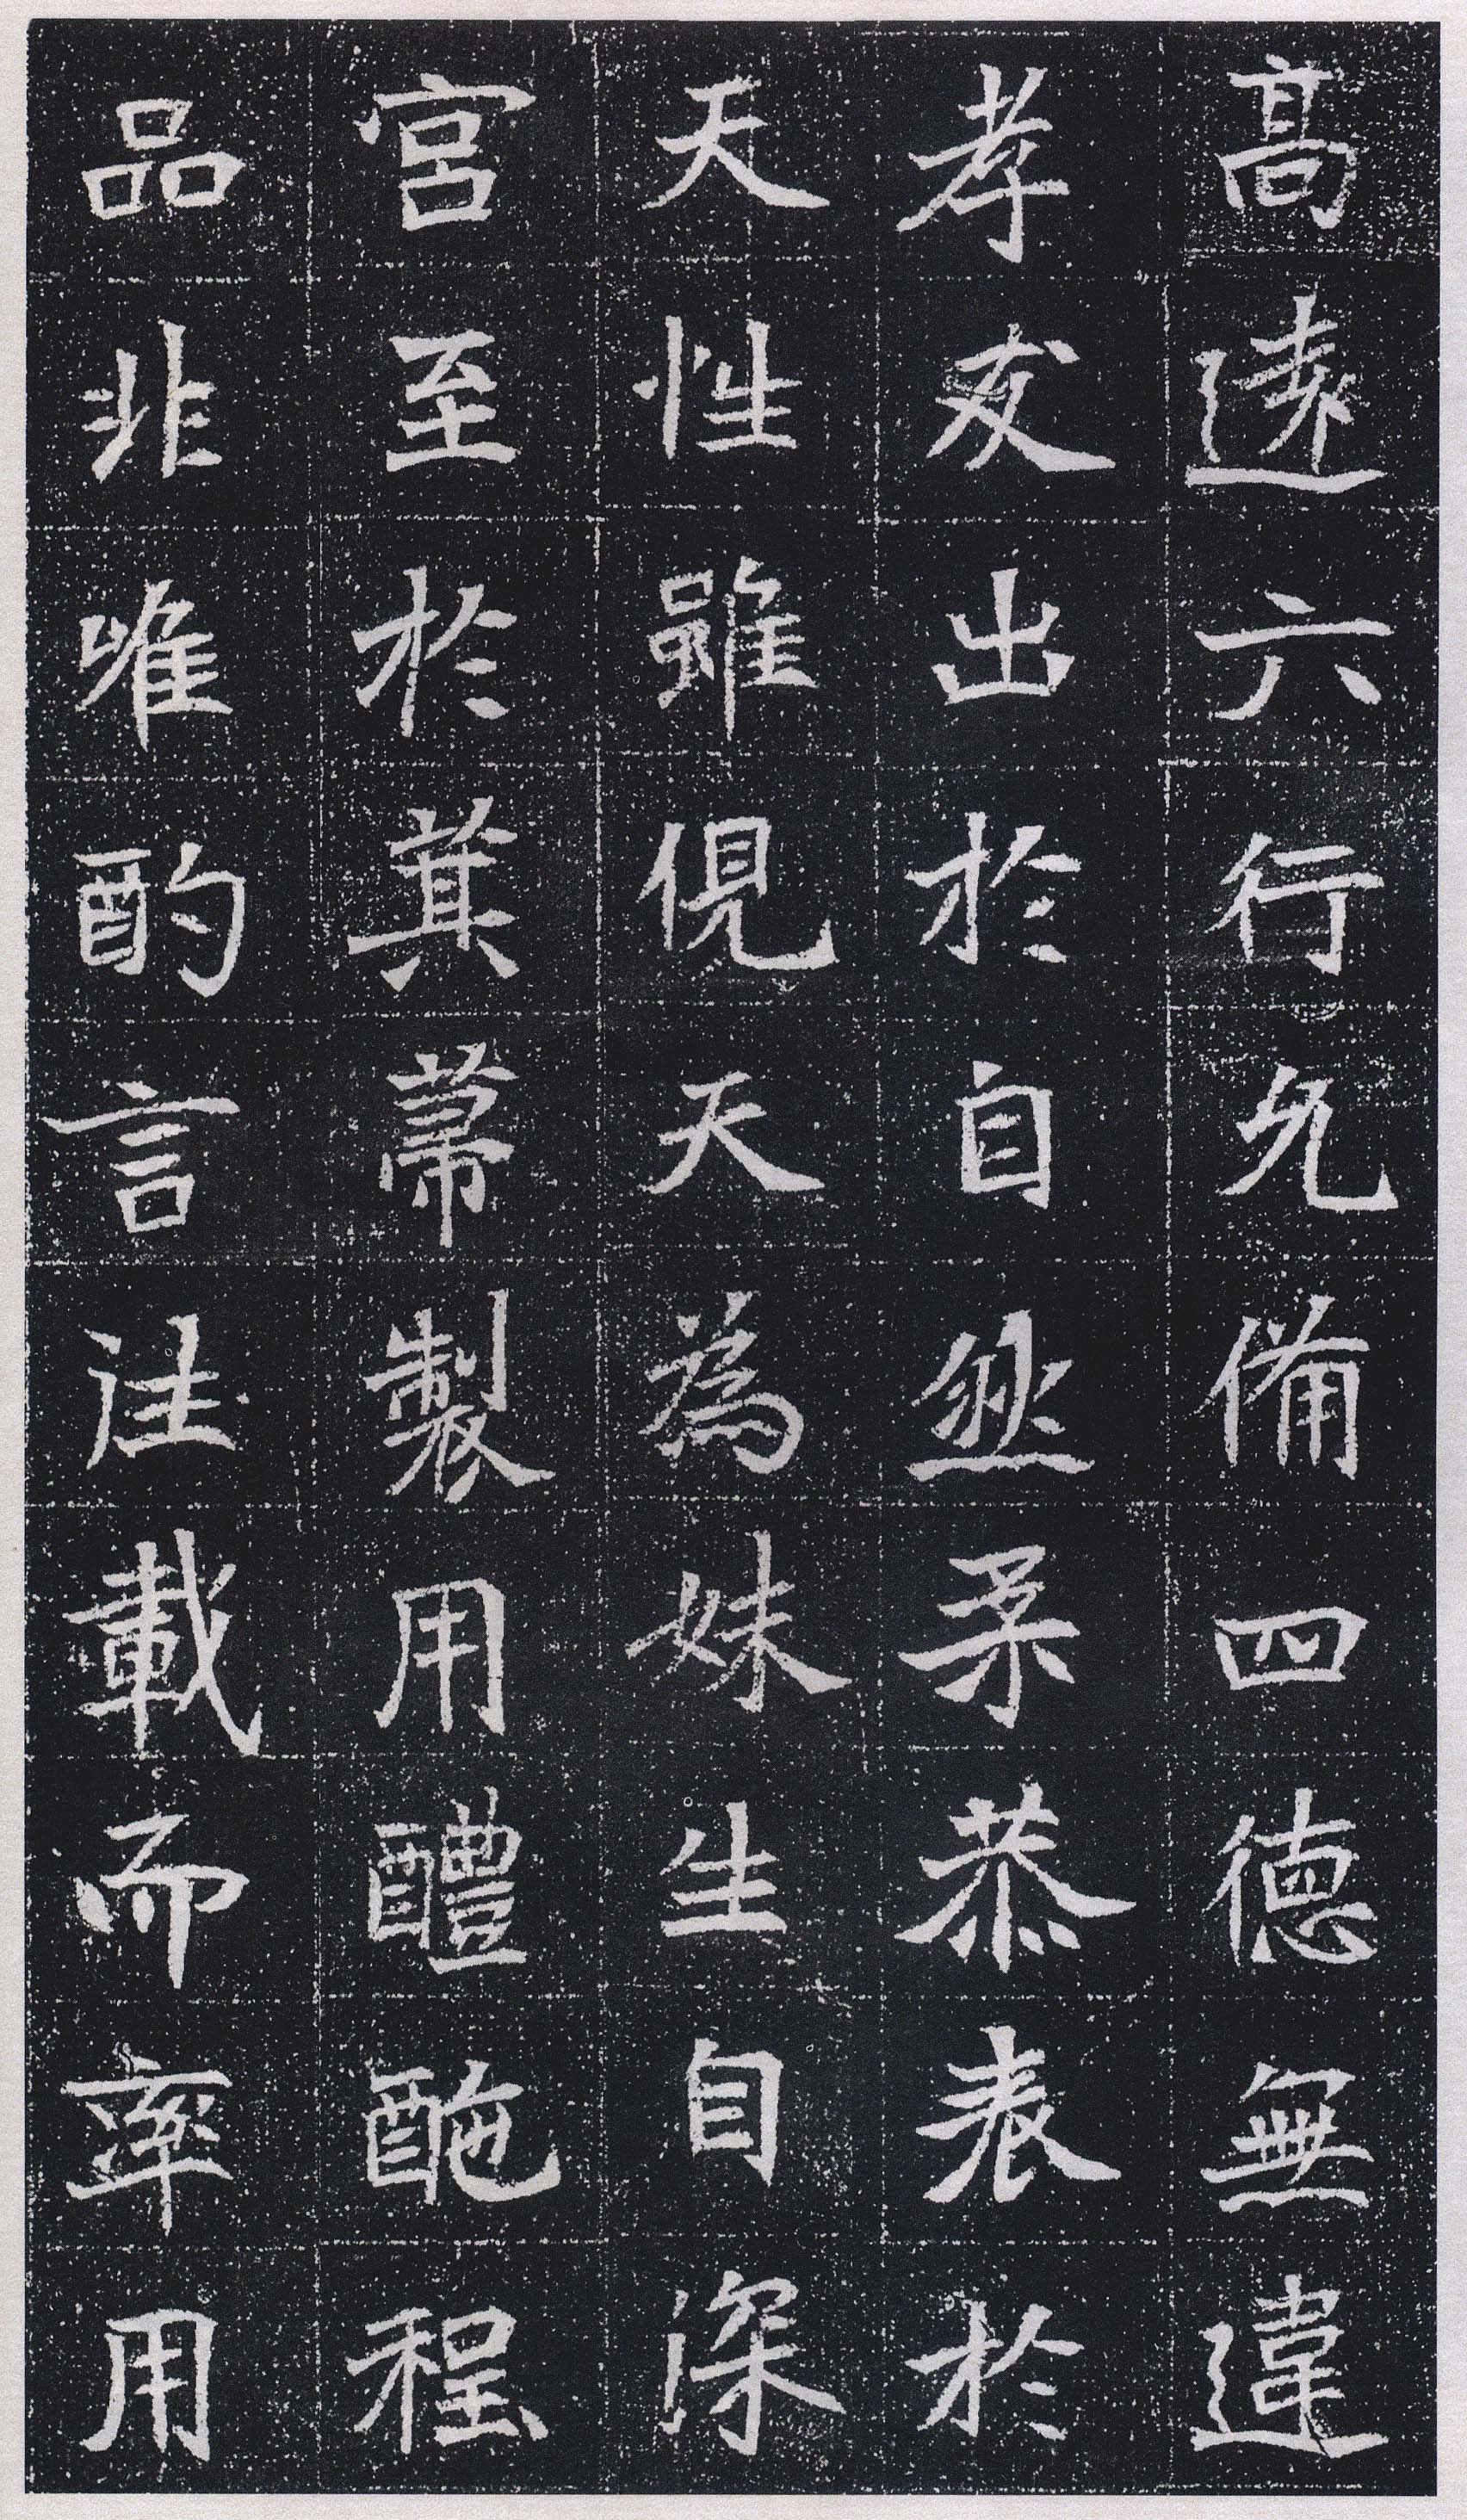 高遠六行允備四德無違
孝友出於自然柔恭表於
天性雖俔天為妹生自深
宮至於箕帚製用醴酏程
品非唯酌言往載而率用